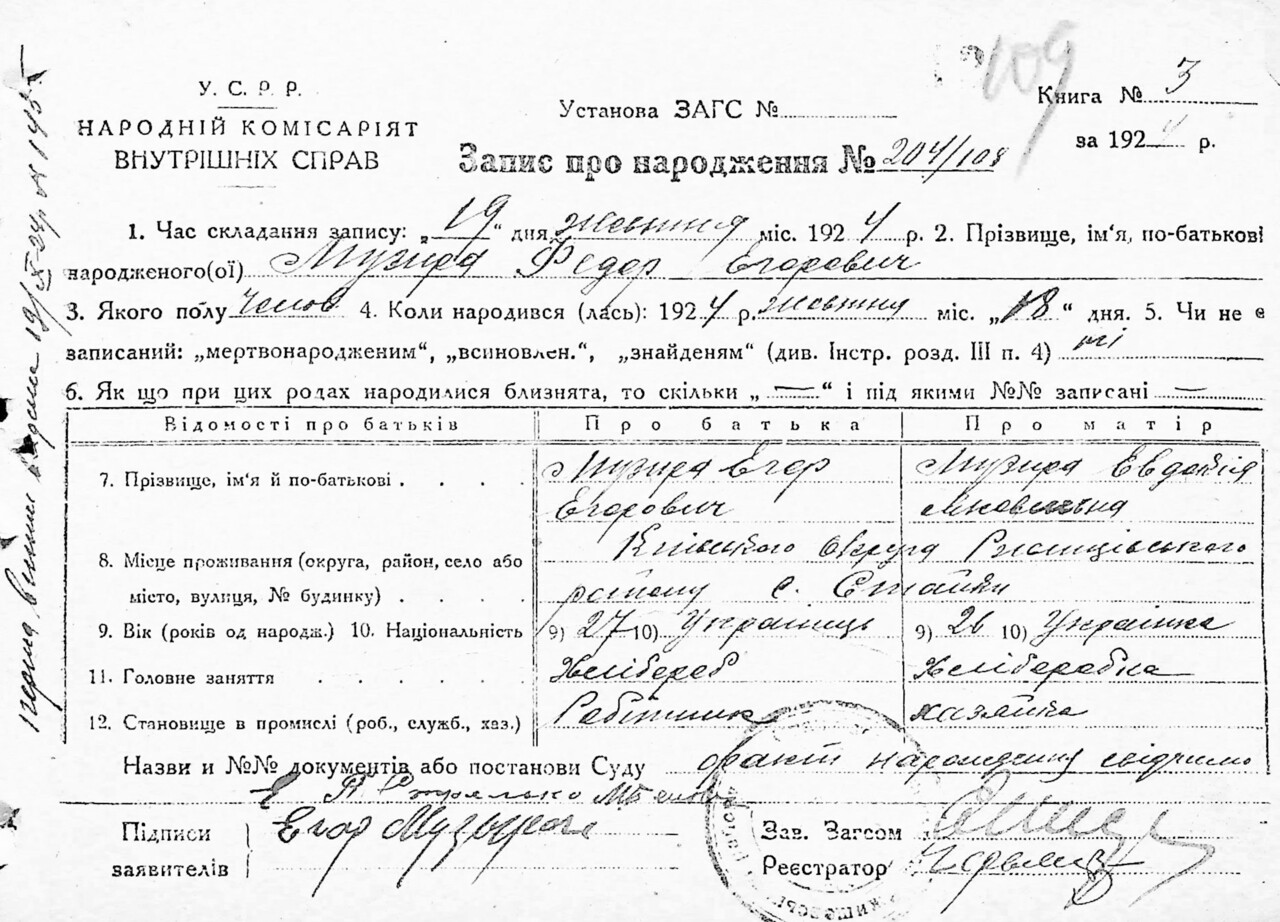 У. С. Р. Р.
НАРОДНІЙ КОМІСАРІЯТ
ВНУТРІШНІХ СПРАВ
109
Установа ЗАГС №
Книга № 3
за 1924 р.
Запис про народження № 204/108
1. Час складання запису: „19“ дня жовтня міс. 1924 р. 2. Прізвище, ім‘я, по-батькові
народженого(ої) Музира Федор Егорович
3. Якого полу Чолов 4. Коли народився (лась): 1924 р. жовтня міс. „18“ дня. 5. Чи не є
записаний: „мертвонародженим“, „всиновлен.“, „знайденям“ (див. Інстр. розд. III п. 4) ні
6. Як що при цих родах народилися близнята, то скільки „—“ і під якими №№ записані —
Відомості про батьків Про батька Про матір
7. Прізвище, ім‘я й по-батькові . . . . Музира Егор Музира Евдокія
Егорович Яковлевна
8. Місце проживання (округа, район, село або Київського округа Ржищівського
місто, вулиця, № будинку) . . . . району с. Стайки
9. Вік (років од народж.) 10. Національність 9) 27 10) Українець 9) 26 10) Українка
11. Головне заняття . . . . . . Хлібороб Хліборобка
12. Становище в промислі (роб., служб., хаз.) Робітник хазяйка
Назви и №№ документів або постанови Суду факт народження свідчимо
Підписи
заявителів
Егор Музыра
Зав. Загсом
Реєстратор